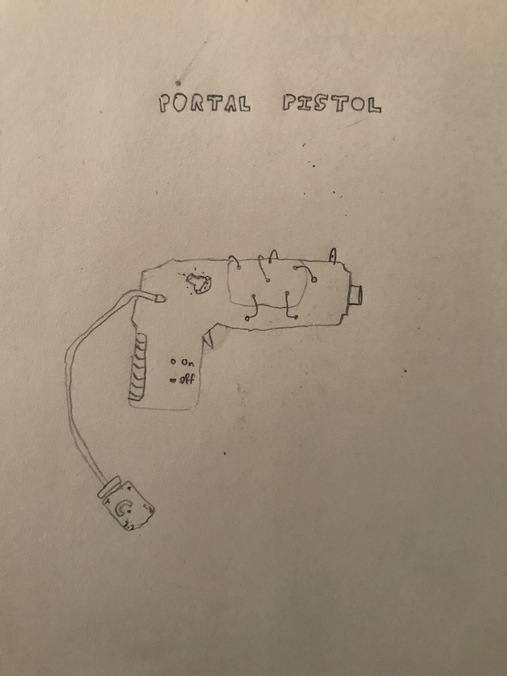 PORTAL PISTOL
On
off